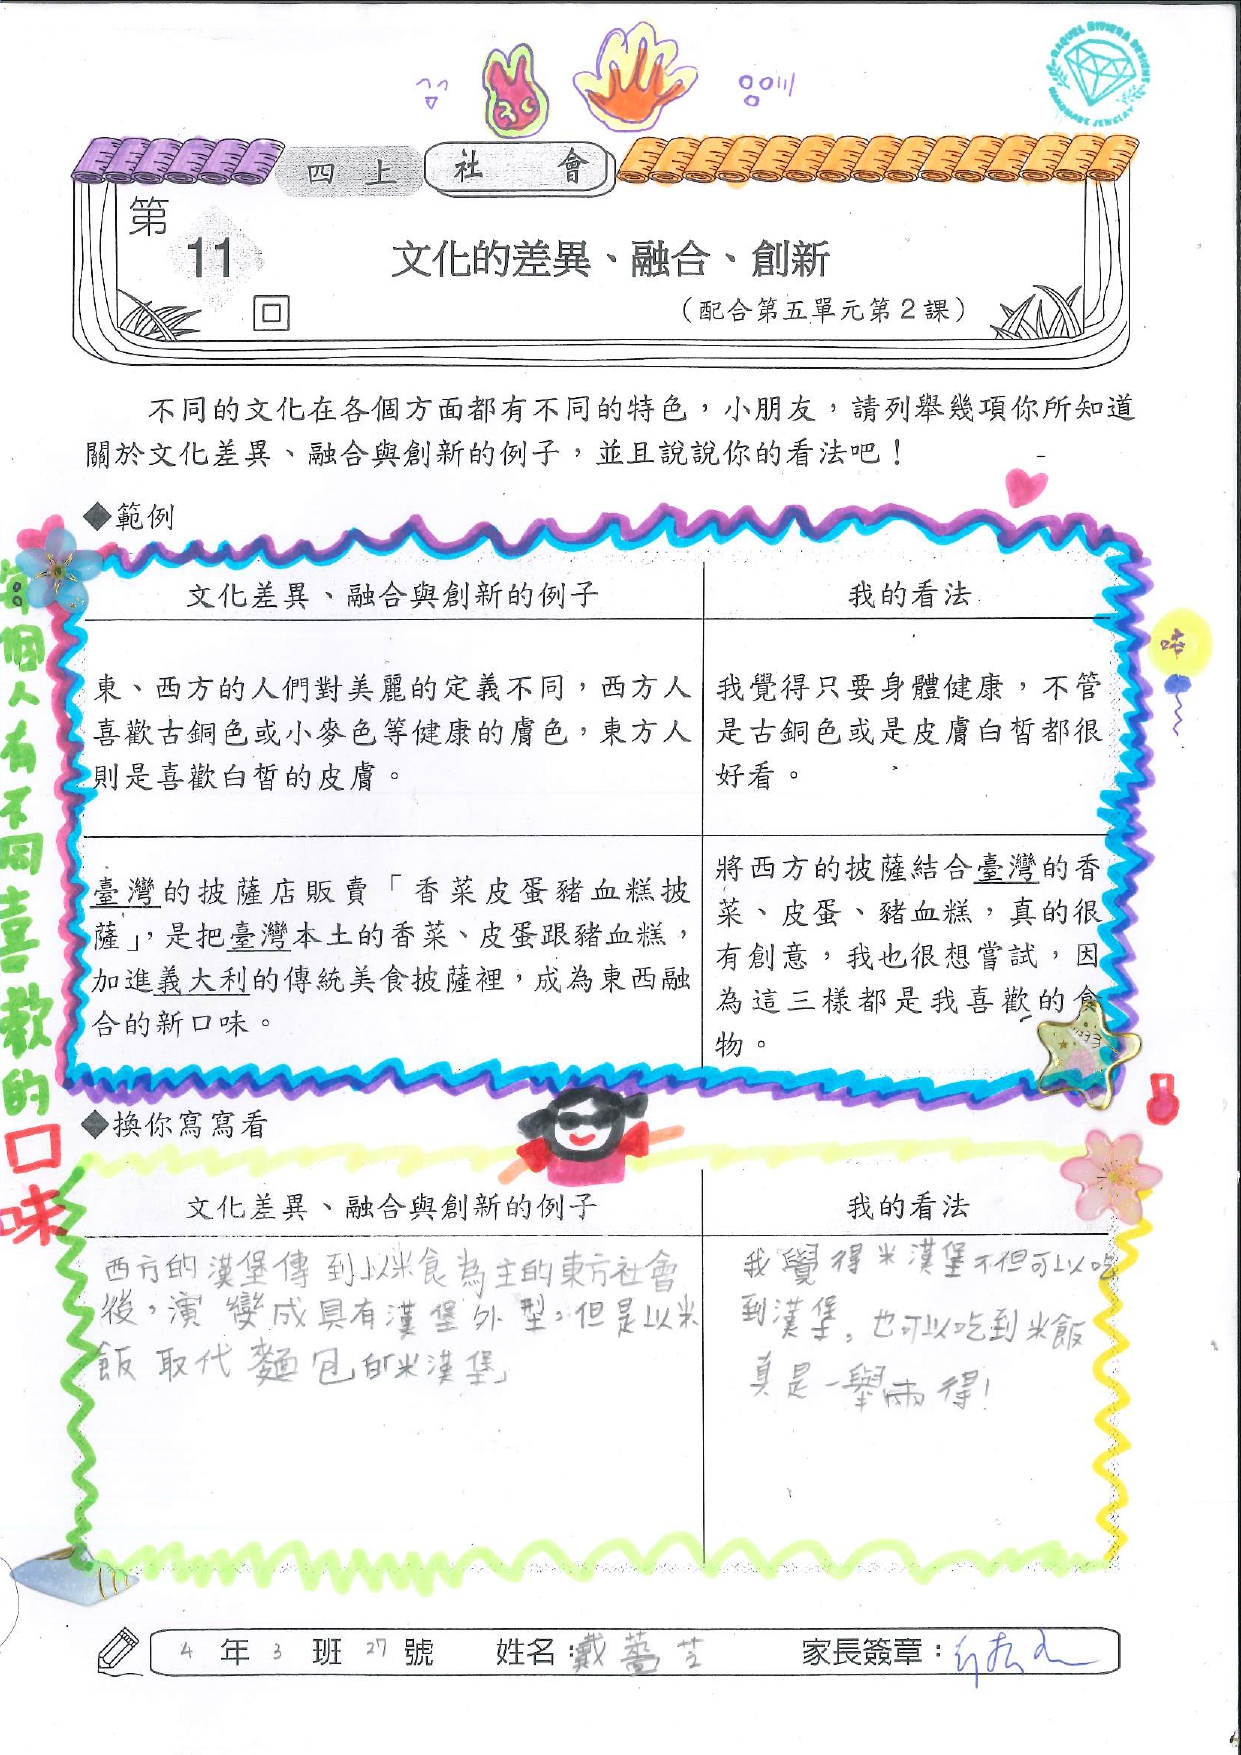 RAQUEL RIVIERA DESIGNS
HANDMADE JEWELRY
四上 社會
第11回
文化的差異、融合、創新
（配合第五單元第2課）
不同的文化在各個方面都有不同的特色，小朋友，請列舉幾項你所知道
關於文化差異、融合與創新的例子，並且說說你的看法吧！
◆範例
文化差異、融合與創新的例子
我的看法
東、西方的人們對美麗的定義不同，西方人
喜歡古銅色或小麥色等健康的膚色，東方人
則是喜歡白皙的皮膚。
我覺得只要身體健康，不管
是古銅色或是皮膚白皙都很
好看。
臺灣的披薩店販賣「香菜皮蛋豬血糕披
薩」，是把臺灣本土的香菜、皮蛋跟豬血糕，
加進義大利的傳統美食披薩裡，成為東西融
合的新口味。
將西方的披薩結合臺灣的香
菜、皮蛋、豬血糕，真的很
有創意，我也很想嘗試，因
為這三樣都是我喜歡的食
物。
個人有不同喜歡的口味
◆換你寫寫看
文化差異、融合與創新的例子
我的看法
西方的漢堡傳到以米食為主的東方社會
後，演變成具有漢堡外型，但是以米
飯取代麵包的「米漢堡」
我覺得米漢堡不但可以吃
到漢堡，也可以吃到米飯
真是一舉兩得！
4年3班27號 姓名：戴 家長簽章：